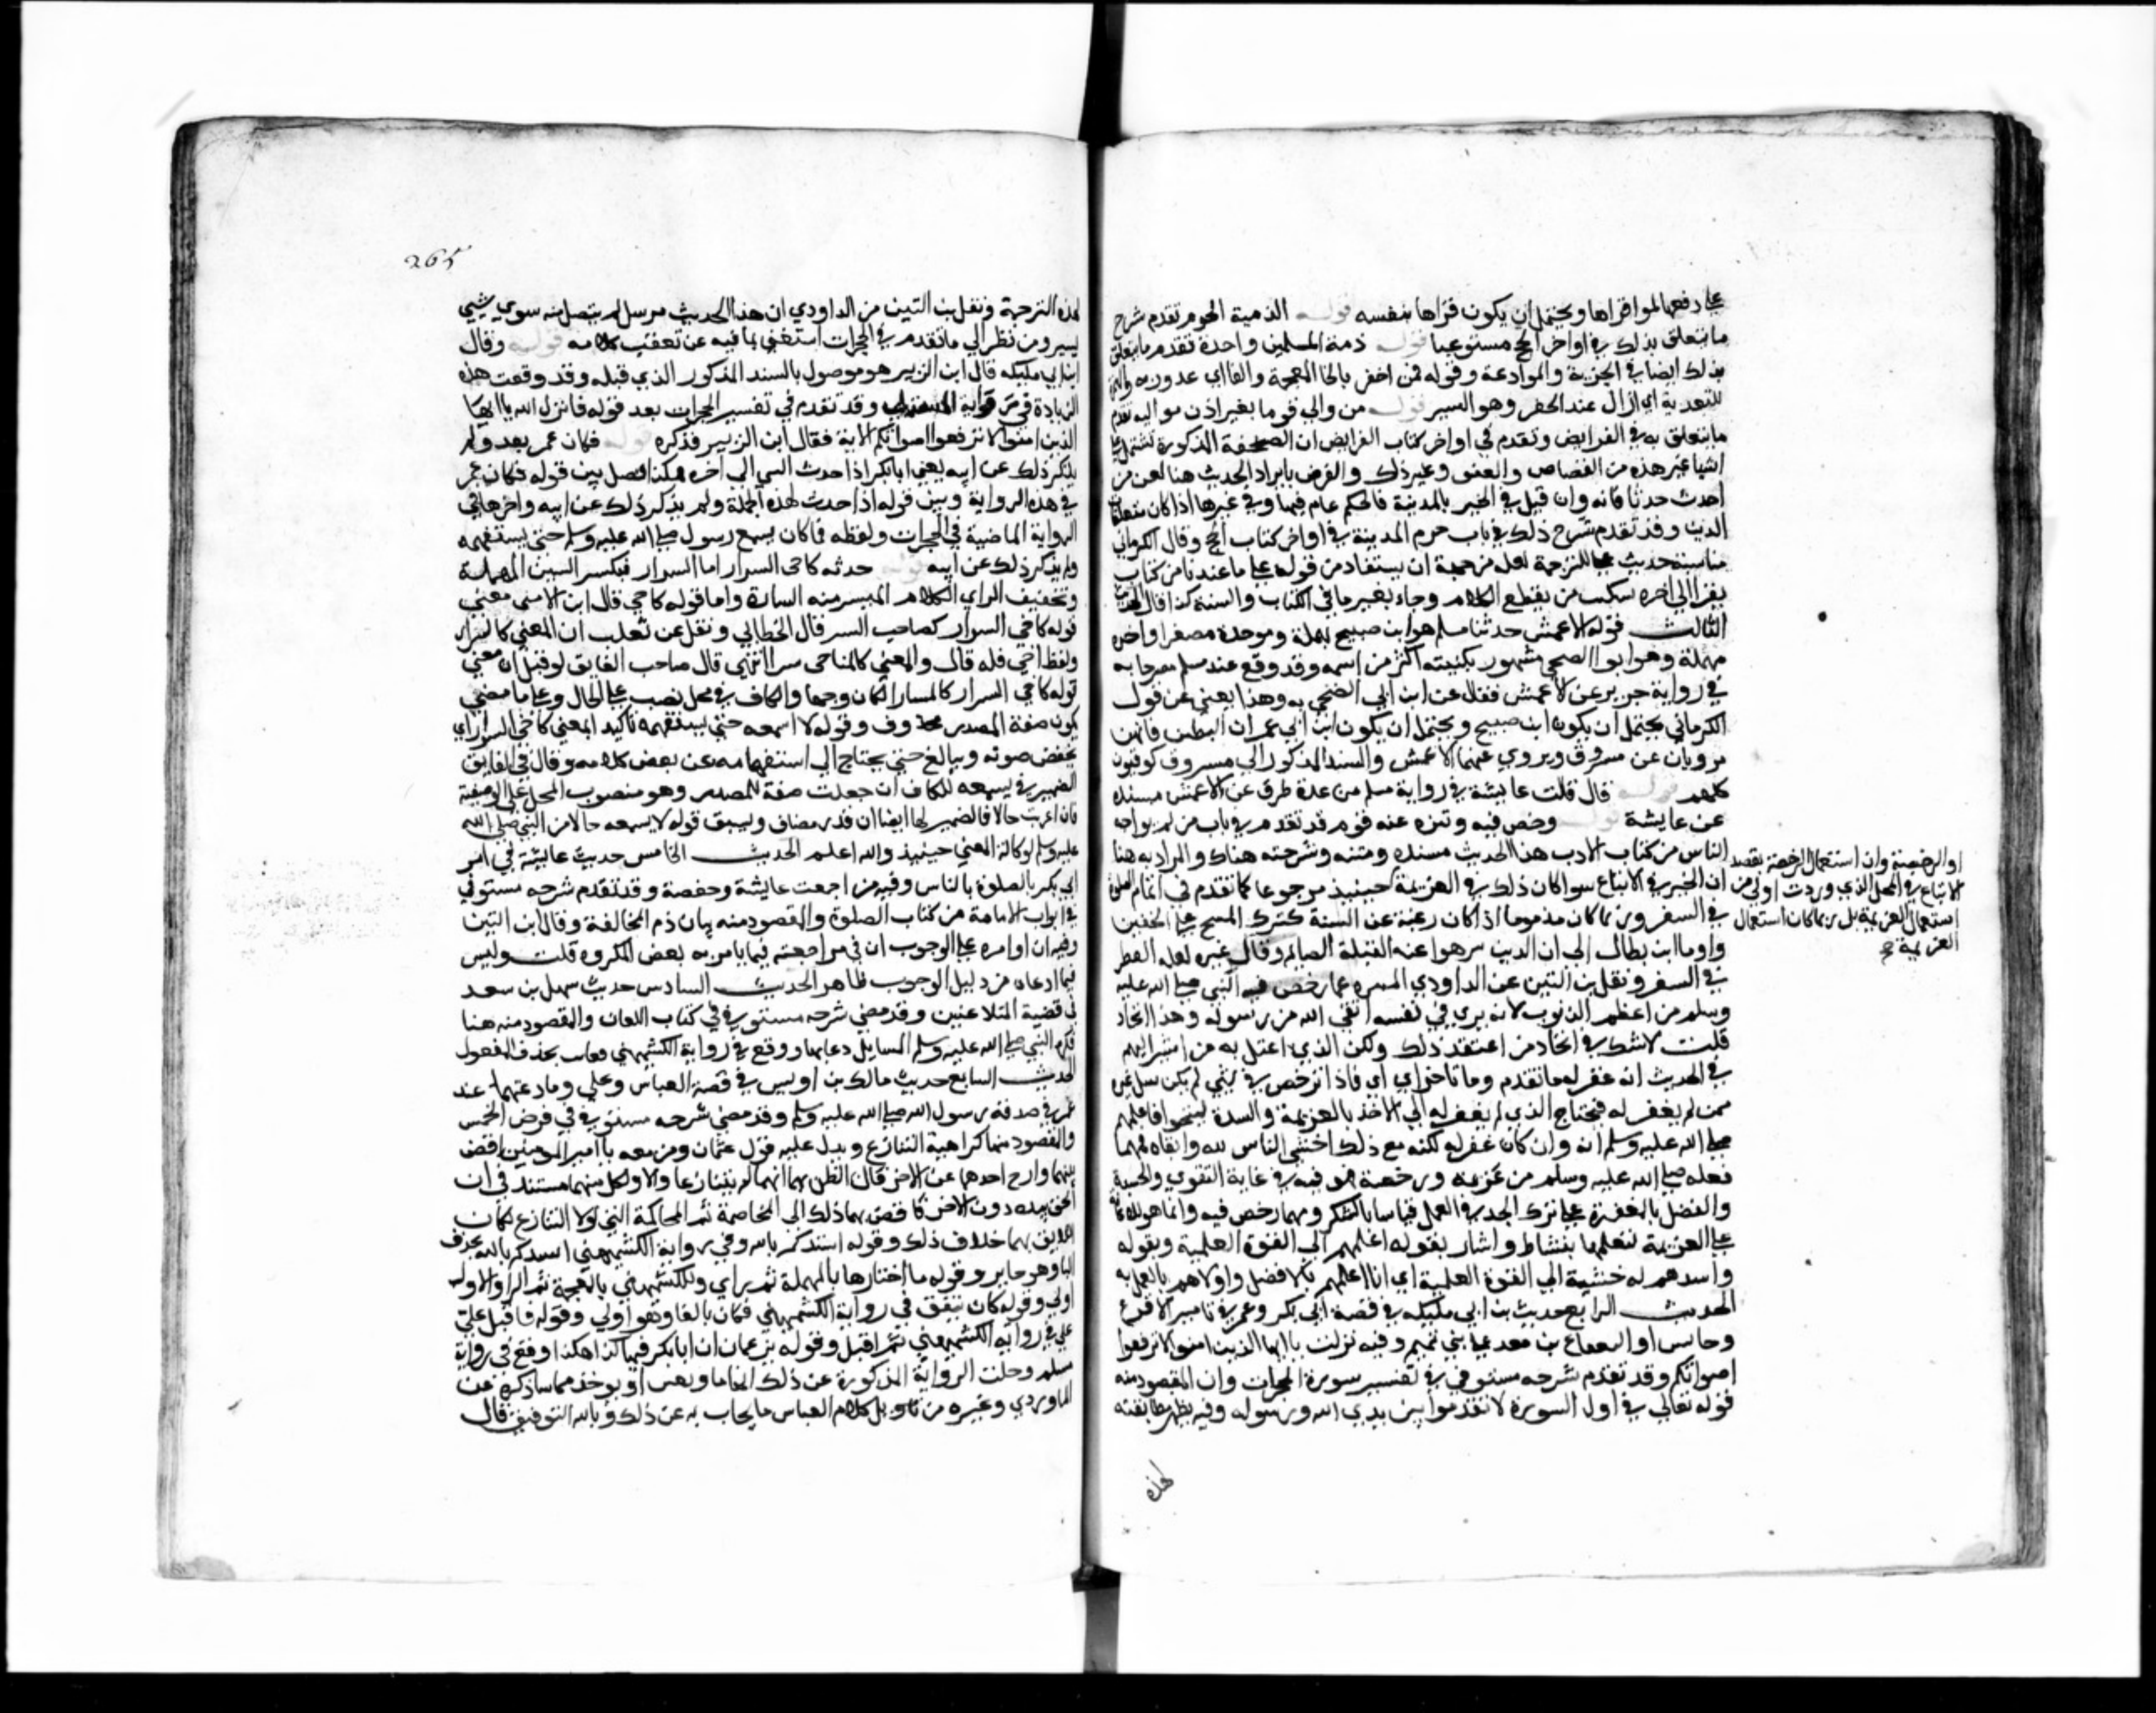 علي دفعها لمو اقراها ويحتمل ان يكون قراها بنفسه قوله الذمية الحوم تقدم شرح
ما يتعلق بذلك في اواخر الحج مستوعبا قوله ذمة المسلمين واحدة تقدم ما يتعلق
بذلك ايضا في الجزية والموادعة وقوله فمن اخفر بالخا المعجمة والفا اي غدر به
للتعدية اي ازال عند الحفر وهو السير قوله من والي قوما بغير اذن مواليه تقدم
ما يتعلق به في الفرايض وتقدم في اواخر كتاب الفرايض ان الصحيفة المذكورة تشتمل علي
اشيا غير هذه من القصاص والعفو وغير ذلك والغرض بايراد الحديث هنا لعن من
احدث حدثا فانه وان قيل في الخبر بالمدينة فالحكم عام فيها وفي غيرها اذا كان متعلقا
الدين وقد تقدم شرح ذلك في باب حرم المدينة في اواخر كتاب الحج وقال الكرماني
مناسبة حديث علي للترجمة لعله من جهة ان يستفاد من قوله علي ما عندنا من كتاب
يقرا الي اخره من يقطع الكلام وجاء بغير ما في الكتاب والسنة كذا قال الحديث
الثالث قوله الاعمش حدثنا مسلم هو ابن صبيح بمهملة وموحدة مصغرا واخره
مهملة وهو ابو الضحي مشهور بكنيته اكثر من اسمه وقد وقع عند مسلم مصرحا به
في رواية جرير عن الاعمش فقال عن ابن ابي الضحي به وهذا يعني عن قول
الكرماني يحتمل ان يكون ابن صبيح ويحتمل ان يكون ابن ابي عمران البطين فانهما
يرويان عن مسروق ويروي عنهما الاعمش والسند المذكور الي مسروق كوفيون
كلهم قوله قال قلت عايشة في رواية مسلم من عدة طرق عن الاعمش بسنده
عن عايشة قوله رخص فيه وتنزه عنه قوم قد تقدم في باب من لم يواجه
الناس من كتاب الادب هذا الحديث بسنده ومتنه وشرحته هناك والمراد به هنا
ان الخير في الاتباع سوا كان ذلك في العزيمة حينيذ مرجوحا كما تقدم في اتمام الصلوة
في السفر وربما كان مذموما اذا كان رغبة عن السنة كترك المسح علي الخفين
واوما ابن بطال الي ان الذين تنزهوا عنه القبلة للصايم وقال غيره لعله الفطر
في السفر ونقل بن التين عن الداودي التنزه عما رخص فيه النبي صلي الله عليه
وسلم من اعظم الذنوب لانه يري في نفسه اتقي الله من رسوله وهذا الحاد
قلت لا شك في الحاد من اعتقد ذلك ولكن الذي اعتل به من اشير اليهم
في الحديث انه غفر له ما تقدم وما تاخر اي اي فاذا ترخص في شي لم يكن مثل غيره
ممن لم يغفر له فيحتاج الذي لم يغفر له الي الاخذ بالعزيمة والشدة لينجوا فاعلمهم
صلي الله عليه وسلم انه وان كان غفر له لكنه مع ذلك اخشي الناس لله واتقاه فمهما
فعله صلي الله عليه وسلم من عزيمة ورخصة فهو فيه في غاية التقوي والخشية
والفضل بالمغفرة علي ترك الجد في العمل قياسا بالشكر ومهما رخص فيه فانما هو للاعانة
علي العزيمة ليفعلها بنشاط واشار بقوله اعلمهم الي القوة العلمية وبقوله
واشدهم له خشية الي القوة العلمية اي انا اعلمهم بالافضل واولاهم بالعمل به
الحديث الرابع حديث بن ابي مليكة في قصة ابي بكر وعمر في تامير الاقرع
وحابس او القعقاع بن معبد علي بني تميم وفيه نزلت يا ايها الذين امنوا لا ترفعوا
اصواتكم وقد تقدم شرحه مستوفي في تفسير سورة الحجرات وان المقصود منه
قوله تعالي في اول السورة لا تقدموا بين يدي الله ورسوله وفيه يظهر مطابقته
او الرخصة وان استعمال الرخصة بقصد
الاتباع في المحل الذي وردت اولي من
استعمال العزيمة بل ربما كان استعمال
العزيمة صح
لهذه
265
لهذه الترجمة ونقل بن التين من الداودي ان هذا الحديث مرسل لم يتصل منه سوي شيي
يسير ومن نظر الي ما تقدم في الحجرات استغني بما فيه عن تعقب كلامه قوله وقال
ابن ابي مليكة قال ابن الزبير هو موصول بالسند المذكور الذي قبله وقد وقعت هذه
الزيادة في رواية المستملي وقد تقدم في تفسير الحجرات بعد قوله فانزل الله يا ايها
الذين امنوا لا ترفعوا اصواتكم الاية فقال ابن الزبير فذكره قوله فكان عمر بعد ولم
يذكر ذلك عن ابيه يعني ابا بكر اذا حدث النبي الي اخره هكذا فصل بين قوله فكان عمر
في هذه الرواية وبين قوله اذا حدث لهذه الجملة ولم يذكر ذلك عن ابيه واخرها في
الرواية الماضية في الحجرات ولفظه فما كان يسمع رسول صلي الله عليه وسلم حتي يستفهمه
ولم يذكر ذلك عن ابيه قوله حدثه كاخي السرار اما السرار فبكسر السين المهملة
وتخفيف الراي الكلام المبسر منه السارة واما قوله كاخي قال ابن الاثير معني
قوله كاخي السرار كصاحب السر قال الخطابي ونقل عن ثعلب ان المعني كالسرار
ولفظ اخي قال والمعني كالمناجي سرا انتهي قال صاحب الفايق لو قيل ان معني
قوله كاخي السرار كالمسار لكان وجها والكاف في محل نصب علي الحال وعلي ما مضي
يكون صفة المصدر محذوف وقوله لا اسمعه حتي يستفهمه تاكيد المعني كاخي السرار اي
يخفض صوته ويبالغ حتي يحتاج الي استفهامه عن بعض كلامه وقال في الفايق
الضمير في يسمعه للكاف ان جعلت صفة للمصدر وهو منصوب المحل علي الوصفية
فان اعربت حالا فالضمير لها ايضا ان قدر مضاف وليس قوله لا يسمعه حالا من النبي صلي الله
عليه وسلم لركاكة المعني حينيذ والله اعلم الحديث الخامس حديث عايشة في امر
ابي بكر بالصلوة بالناس وفيه من اجعت عايشة وحفصة وقد تقدم شرحه مستوفي
في ابواب الامامة من كتاب الصلوة والمقصود منه بيان ذم المخالفة وقال ابن التين
وفيه ان اوامره علي الوجوب ان في مراجعته فيما يامر به بعض المكروه قلت وليس
فيما ادعاه من دليل الوجوب ظاهر الحديث السادس حديث سهل بن سعد
في قضية المتلاعنين وقد مضي شرحه مستوفي في كتاب اللعان والمقصود منه هنا
فكره النبي صلي الله عليه وسلم المسايل دعابها ووقع في رواية الكشميهني وعاب بحذف المفعول
الحديث السابع حديث مالك بن اويس في قصة العباس وعلي وما دعتهما عند
عمر في صدقة رسول الله صلي الله عليه وسلم وقد مضي شرحه مستوفي في فرض الخمس
والمقصود منها كراهية التنازع ويدل عليه قول عثمان ومن معه يا امير المومنين اقض
بينهما وارح احدهما عن الاخر فان الظن بهما انهما لم يتنازعا والا ولكل منهما مستند في ان
الحق بيده دون الاخر فافضي بهما ذلك الي المخاصمة ثم المحاكمة التي لولا التنازع لكان
اللايق بهما خلاف ذلك وقوله اتشدكم بالله وفي رواية الكشميهني انشدكم بالله بحذف
البا وهو جايز وقوله ما اختارها بالمهملة ثم براي وللكشميهني بالمعجمة ثم الرا والاول
اولي وقوله كان ينفق في رواية الكشميهني فكان بالفا وهو اولي وقوله فاقبل علي
علي في رواية الكشميهني ثم اقبل وقوله تزعمان ان ابا بكر فيها كذا هكذا وقع في رواية
مسلم وحلت الرواية المذكورة عن ذلك ايهاما ويعني او يوخذ مما ساذكره عن
الماوردي وغيره من تاويل كلام العباس ما يجاب به عن ذلك وبالله التوفيق قال